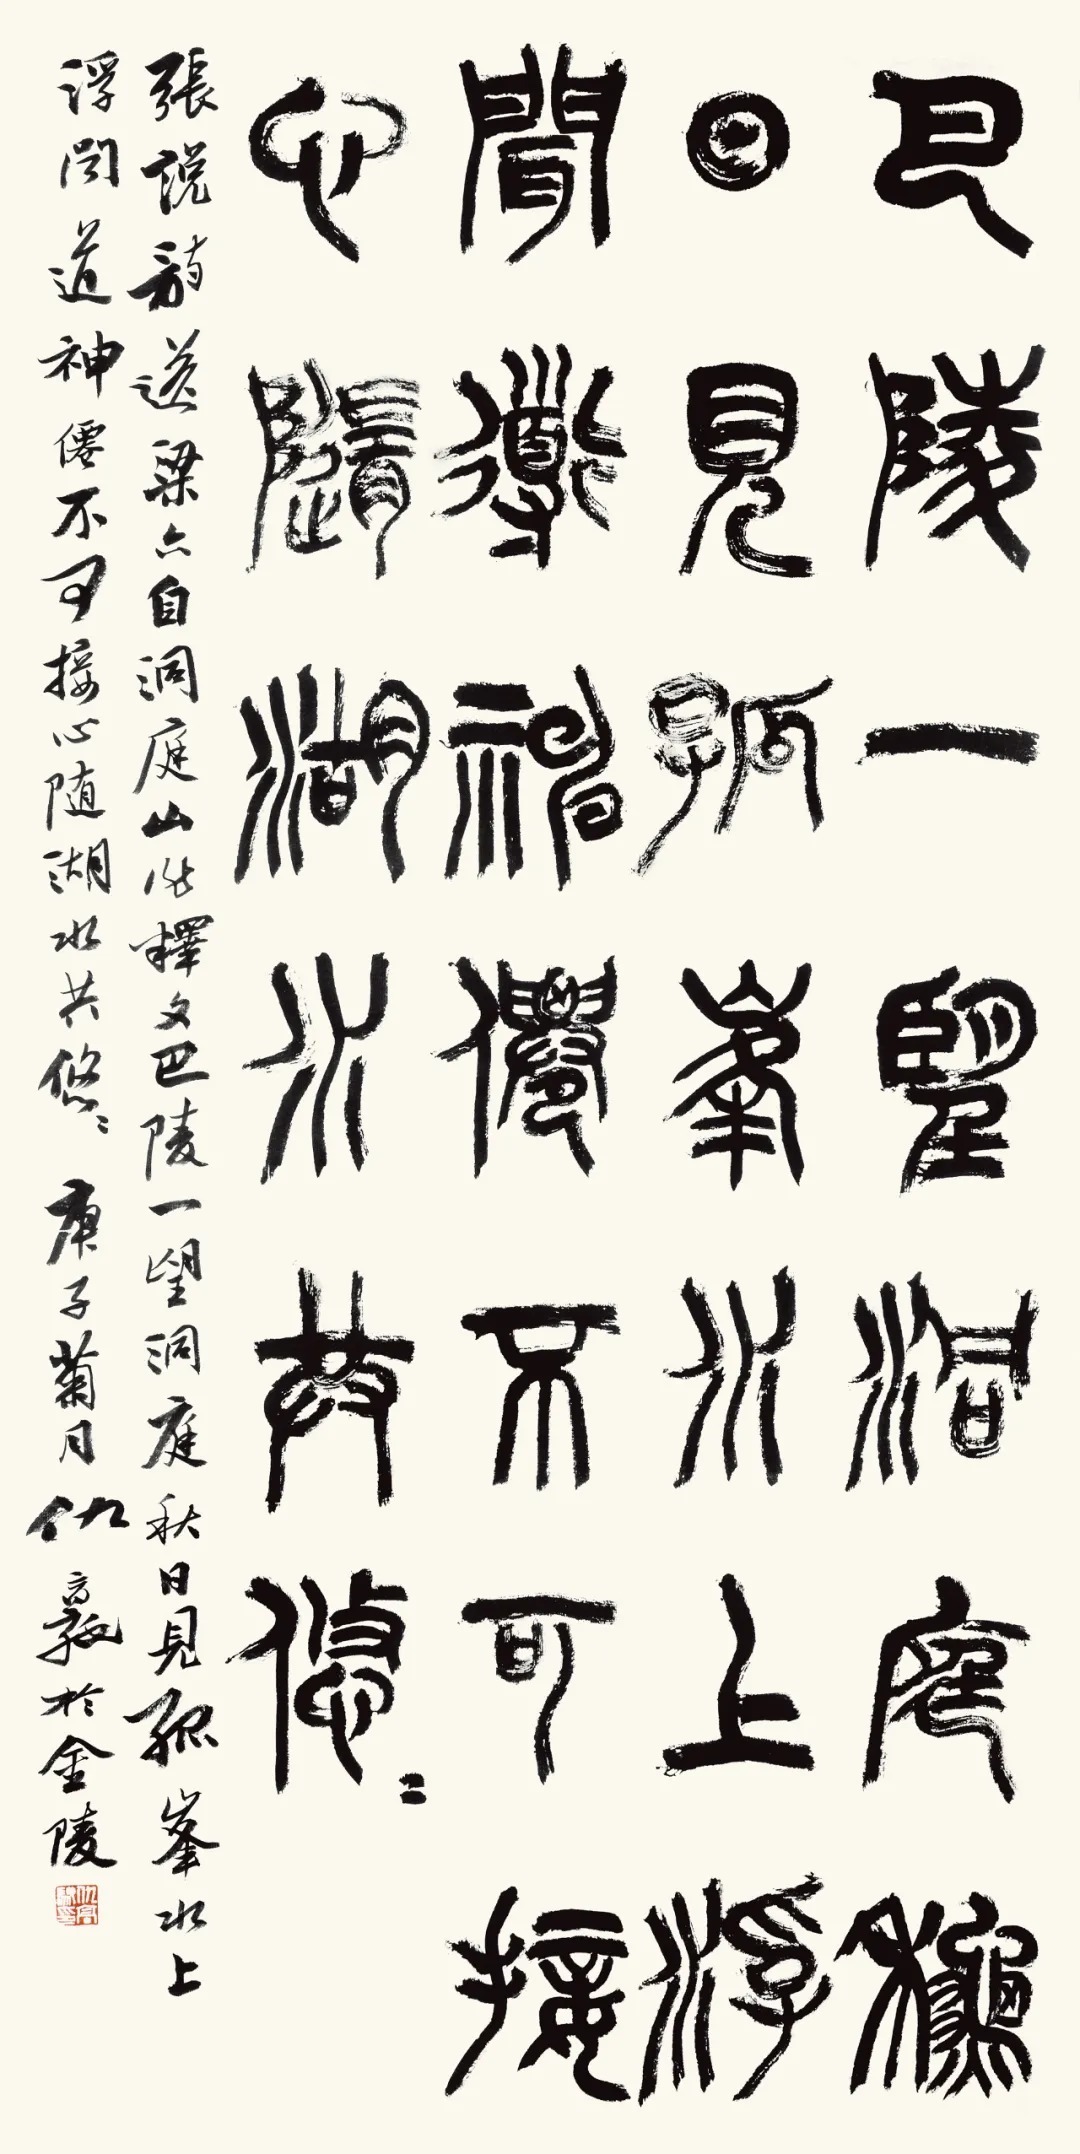 巴陵一望洞庭秋
日見孤峯水上浮
聞道神僊不可接
心隨湖水共悠〻
張說詩送梁六自洞庭山作釋文巴陵一望洞庭秋日見孤峯水上
浮聞道神僊不可接心随湖水共悠〻 庚子菊月 仇高馳於金陵